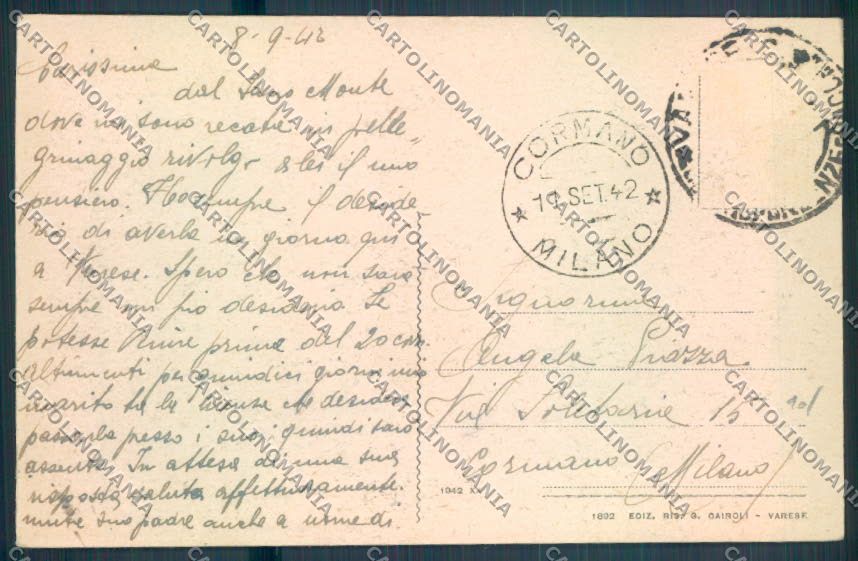 8-9-42
Carissima
dal Sacro Monte
dove mi sono recata in pelle-
grinaggio rivolgo a lei il mio
pensiero. Ho sempre il deside
rio di averla un giorno qui
a Varese. Spero che non sarà
sempre un pio desiderio. Se
potesse venire prima del 20 corr.
altrimenti per quindici giorni mio
marito ha la licenza che desidera
passarla presso i suoi, quindi sarò
assente. In attesa di una sua
risposta saluta affettuosamente
suo padre anche a nome di
CORMANO
19 SET.42
MILANO
Signorina
Angela Piazza
Via Solitaria 15
Cormano (Milano)
1942 XX
1892 EDIZ. RIS. G. CAIROLI - VARESE
CARTOLINOMANIA